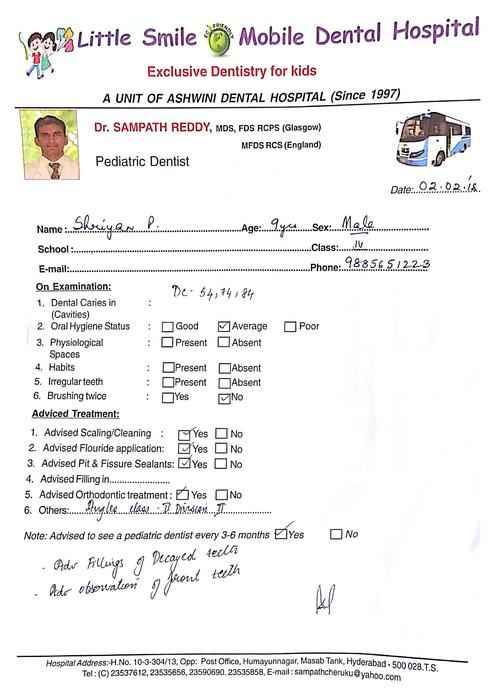 Little Smile Mobile Dental Hospital
Exclusive Dentistry for kids
A UNIT OF ASHWINI DENTAL HOSPITAL (Since 1997)
Dr. SAMPATH REDDY, MDS, FDS RCPS (Glasgow)
MFDS RCS (England)
Pediatric Dentist
Date: 02.02.18
Name: Shriyan P. Age: 9yrs Sex: Male
School: Class: IV
E-mail: Phone: 9885651223
On Examination:
1. Dental Caries in : DC - 54, 74, 84
(Cavities)
2. Oral Hygiene Status : Good Average Poor
3. Physiological : Present Absent
Spaces
4. Habits : Present Absent
5. Irregular teeth : Present Absent
6. Brushing twice : Yes No
Adviced Treatment:
1. Advised Scaling/Cleaning : Yes No
2. Advised Flouride application: Yes No
3. Advised Pit & Fissure Sealants: Yes No
4. Advised Filling in
5. Advised Orthodontic treatment: Yes No
6. Others: Angles class - II Division II
Note: Advised to see a pediatric dentist every 3-6 months Yes No
- Adv Fillings of Decayed teeth
- Adv observation of front teeth
Hospital Address:-H.No. 10-3-304/13, Opp: Post Office, Humayunnagar, Masab Tank, Hyderabad - 500 028.T.S.
Tel : (C) 23537612, 23535656, 23590690, 23535858, E-mail : sampathcheruku@yahoo.com